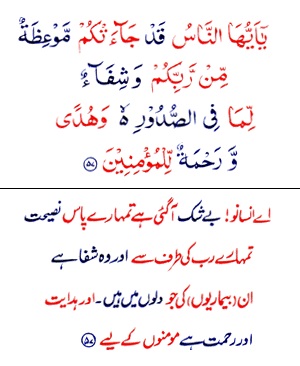 يٰٓاَيُّهَا النَّاسُ قَدْ جَآءَتْكُمْ مَّوْعِظَةٌ
مِّنْ رَّبِّكُمْ وَشِفَآءٌ
لِّمَا فِى الصُّدُوْرِ ۙ وَهُدًى
وَّ رَحْمَةٌ لِّلْمُؤْمِنِيْنَ ﴿۵۷﴾
اے انسانو! بے شک آ گئی ہے تمہارے پاس نصیحت
تمہارے رب کی طرف سے اور وہ شفا ہے
ان (بیماریوں) کی جو دلوں میں ہیں۔ اور ہدایت
اور رحمت ہے مومنوں کے لیے ﴿۵۷﴾